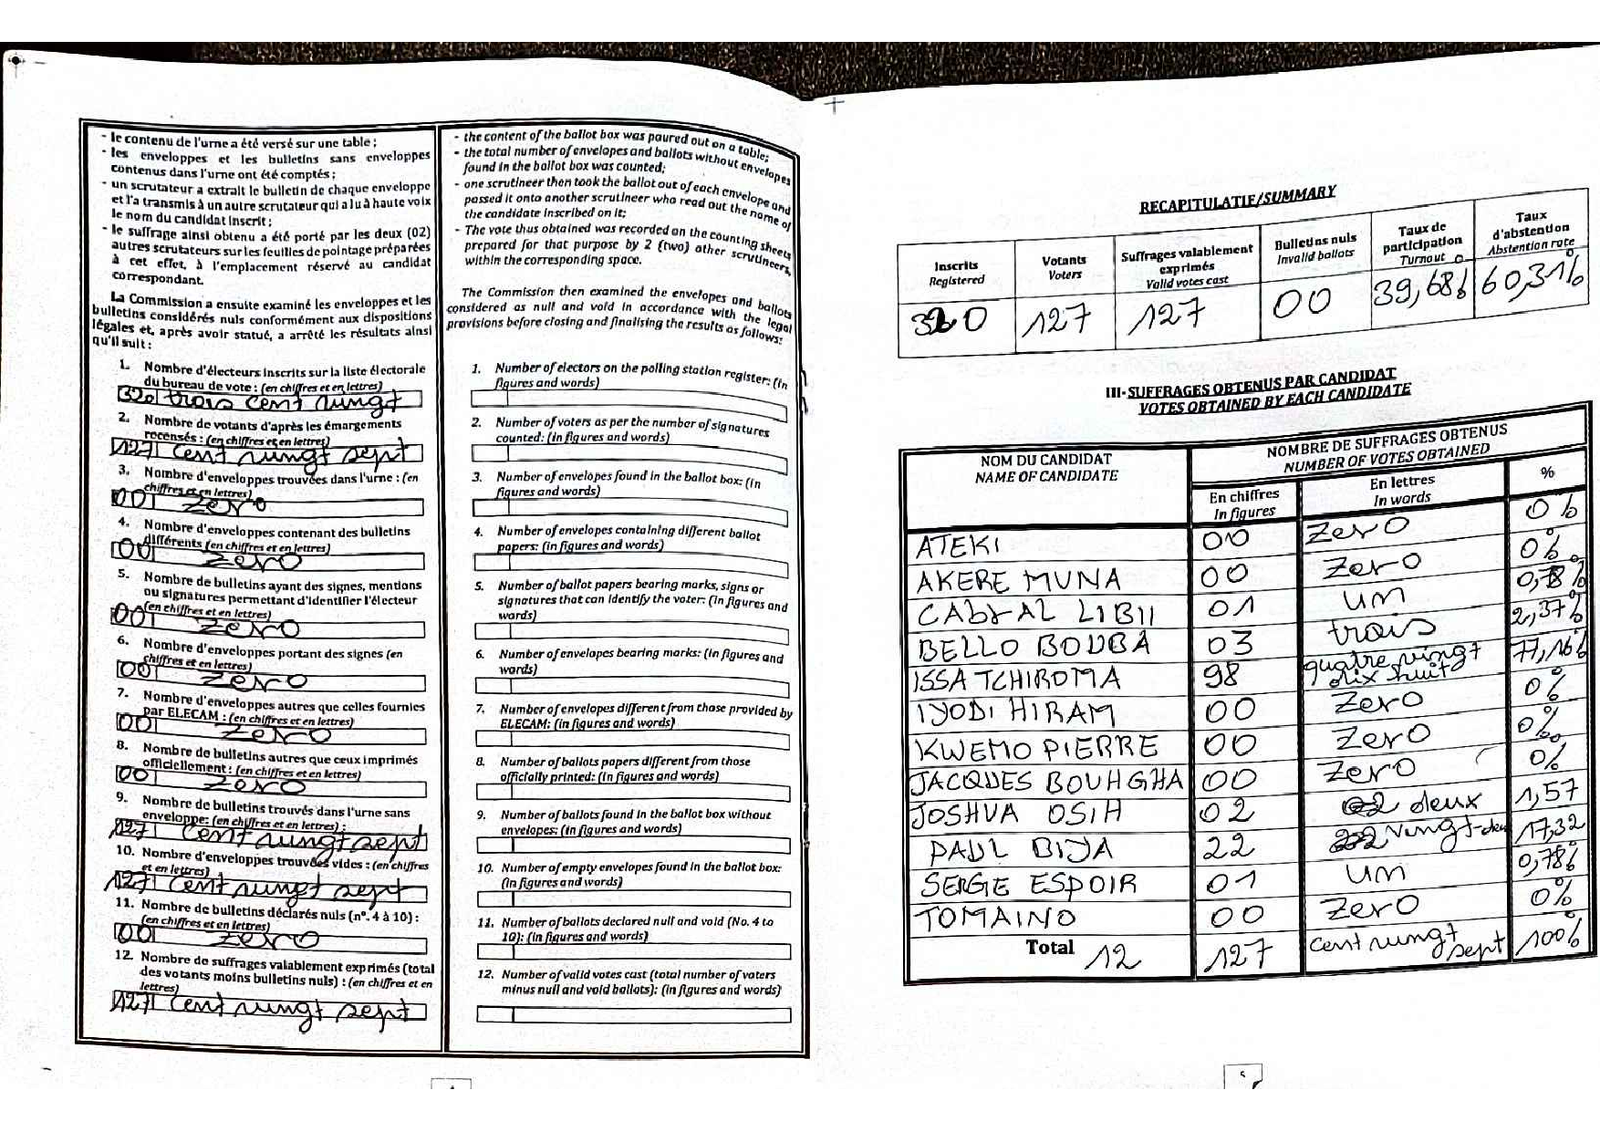 - le contenu de l'urne a été versé sur une table ;
- les enveloppes et les bulletins sans enveloppes
contenus dans l'urne ont été comptés ;
- un scrutateur a extrait le bulletin de chaque enveloppe
et l'a transmis à un autre scrutateur qui a lu à haute voix
le nom du candidat inscrit ;
- le suffrage ainsi obtenu a été porté par les deux (02)
autres scrutateurs sur les feuilles de pointage préparées
à cet effet, à l'emplacement réservé au candidat
correspondant.
La Commission a ensuite examiné les enveloppes et les
bulletins considérés nuls conformément aux dispositions
légales et, après avoir statué, a arrêté les résultats ainsi
qu'il suit :
1. Nombre d'électeurs inscrits sur la liste électorale
du bureau de vote : (en chiffres et en lettres)
320 trois cent vingt
2. Nombre de votants d'après les émargements
recensés : (en chiffres et en lettres)
127 cent vingt sept
3. Nombre d'enveloppes trouvées dans l'urne : (en
chiffres et en lettres)
00 zero
4. Nombre d'enveloppes contenant des bulletins
différents (en chiffres et en lettres)
00 zero
5. Nombre de bulletins ayant des signes, mentions
ou signatures permettant d'identifier l'électeur
(en chiffres et en lettres)
00 zero
6. Nombre d'enveloppes portant des signes (en
chiffres et en lettres)
00 zero
7. Nombre d'enveloppes autres que celles fournies
par ELECAM : (en chiffres et en lettres)
00 zero
8. Nombre de bulletins autres que ceux imprimés
officiellement : (en chiffres et en lettres)
00 zero
9. Nombre de bulletins trouvés dans l'urne sans
enveloppe: (en chiffres et en lettres) :
127 cent vingt sept
10. Nombre d'enveloppes trouvées vides : (en chiffres
et en lettres)
127 cent vingt sept
11. Nombre de bulletins déclarés nuls (n°. 4 à 10) :
(en chiffres et en lettres)
00 zero
12. Nombre de suffrages valablement exprimés (total
des votants moins bulletins nuls) : (en chiffres et en
lettres)
127 cent vingt sept
- the content of the ballot box was poured out on a table;
- the total number of envelopes and ballots without envelopes
found in the ballot box was counted;
- one scrutineer then took the ballot out of each envelope and
passed it onto another scrutineer who read out the name of
the candidate inscribed on it;
- The vote thus obtained was recorded on the counting sheets
prepared for that purpose by 2 (two) other scrutineers,
within the corresponding space.
The Commission then examined the envelopes and ballots
considered as null and void in accordance with the legal
provisions before closing and finalising the results as follows:
1. Number of electors on the polling station register: (in
figures and words)
2. Number of voters as per the number of signatures
counted: (in figures and words)
3. Number of envelopes found in the ballot box: (in
figures and words)
4. Number of envelopes containing different ballot
papers: (in figures and words)
5. Number of ballot papers bearing marks, signs or
signatures that can identify the voter: (in figures and
words)
6. Number of envelopes bearing marks: (in figures and
words)
7. Number of envelopes different from those provided by
ELECAM: (in figures and words)
8. Number of ballots papers different from those
officially printed: (in figures and words)
9. Number of ballots found in the ballot box without
envelopes: (in figures and words)
10. Number of empty envelopes found in the ballot box:
(in figures and words)
11. Number of ballots declared null and void (No. 4 to
10): (in figures and words)
12. Number of valid votes cast (total number of voters
minus null and void ballots): (in figures and words)
RECAPITULATIF/SUMMARY
Inscrits Registered | Votants Voters | Suffrages valablement exprimés Valid votes cast | Bulletins nuls Invalid ballots | Taux de participation Turnout | Taux d'abstention Abstention rate
320 | 127 | 127 | 00 | 39,68% | 60,31%
III- SUFFRAGES OBTENUS PAR CANDIDAT
VOTES OBTAINED BY EACH CANDIDATE
NOM DU CANDIDAT NAME OF CANDIDATE | NOMBRE DE SUFFRAGES OBTENUS NUMBER OF VOTES OBTAINED
En chiffres In figures | En lettres In words | %
ATEKI 00 zero 0%
AKERE MUNA 00 zero 0%
CABRAL LIBII 01 un 0,78%
BELLO BOUBA 03 trois 2,37%
ISSA TCHIROMA 98 quatre vingt dix huit 77,16%
IYODI HIRAM 00 zero 0%
KWEMO PIERRE 00 zero 0%
JACQUES BOUHGHA 00 zero 0%
JOSHUA OSIH 02 deux 1,57
PAUL BIYA 22 vingt-deux 17,32
SERGE ESPOIR 01 un 0,78%
TOMAINO 00 zero 0%
Total 12 127 cent vingt sept 100%
5